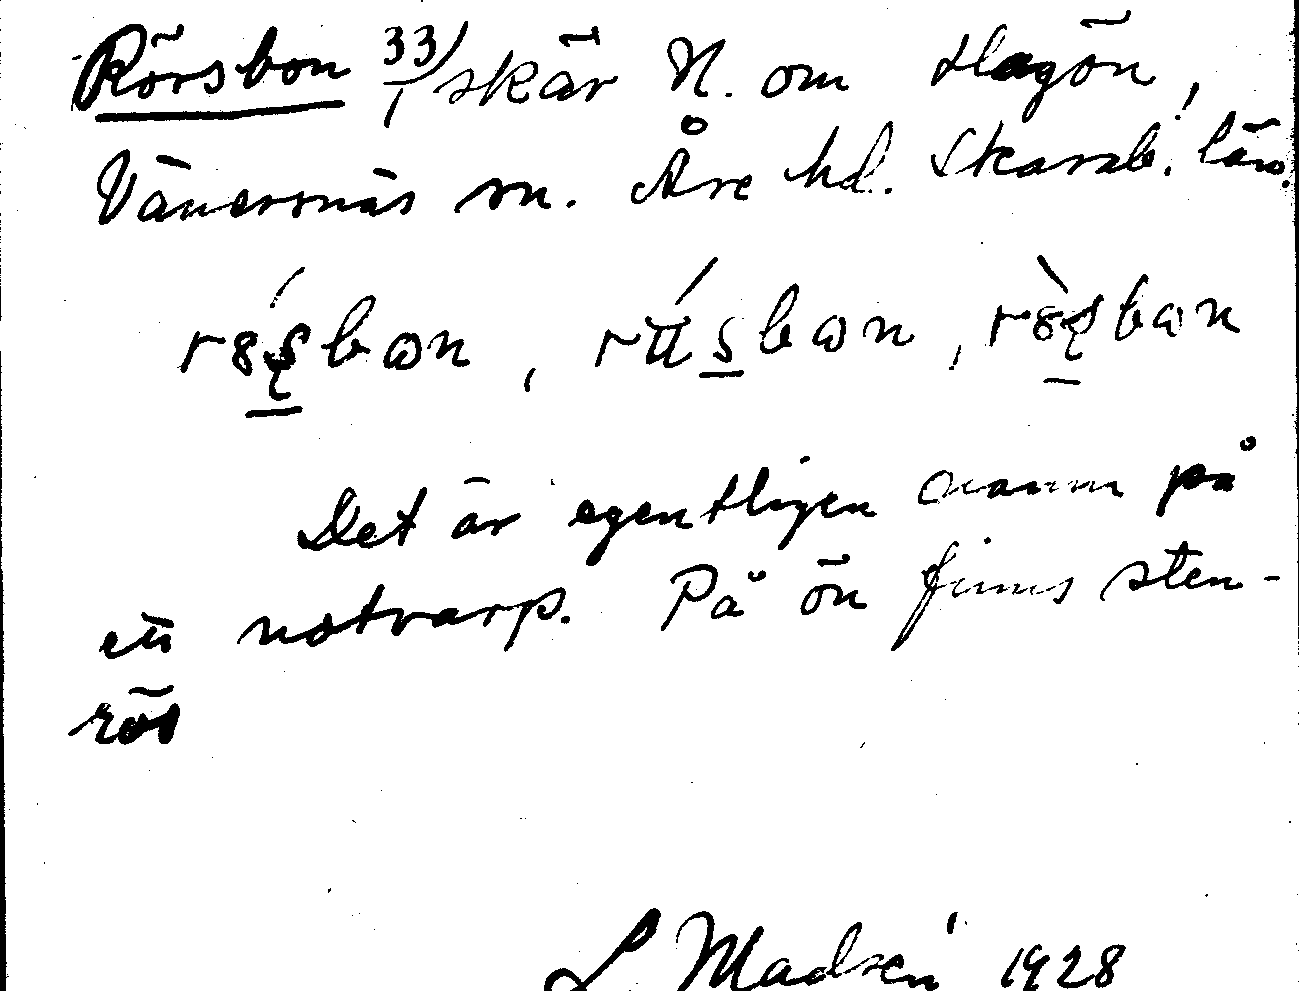 Rörsbon 33/1 skär N. om Hagön,
Vänersnäs sn. Åse hd. Skarab. län.
Det är egentligen namn på
ett notvarp. På ön finns sten-
rös
L Madsén 1928